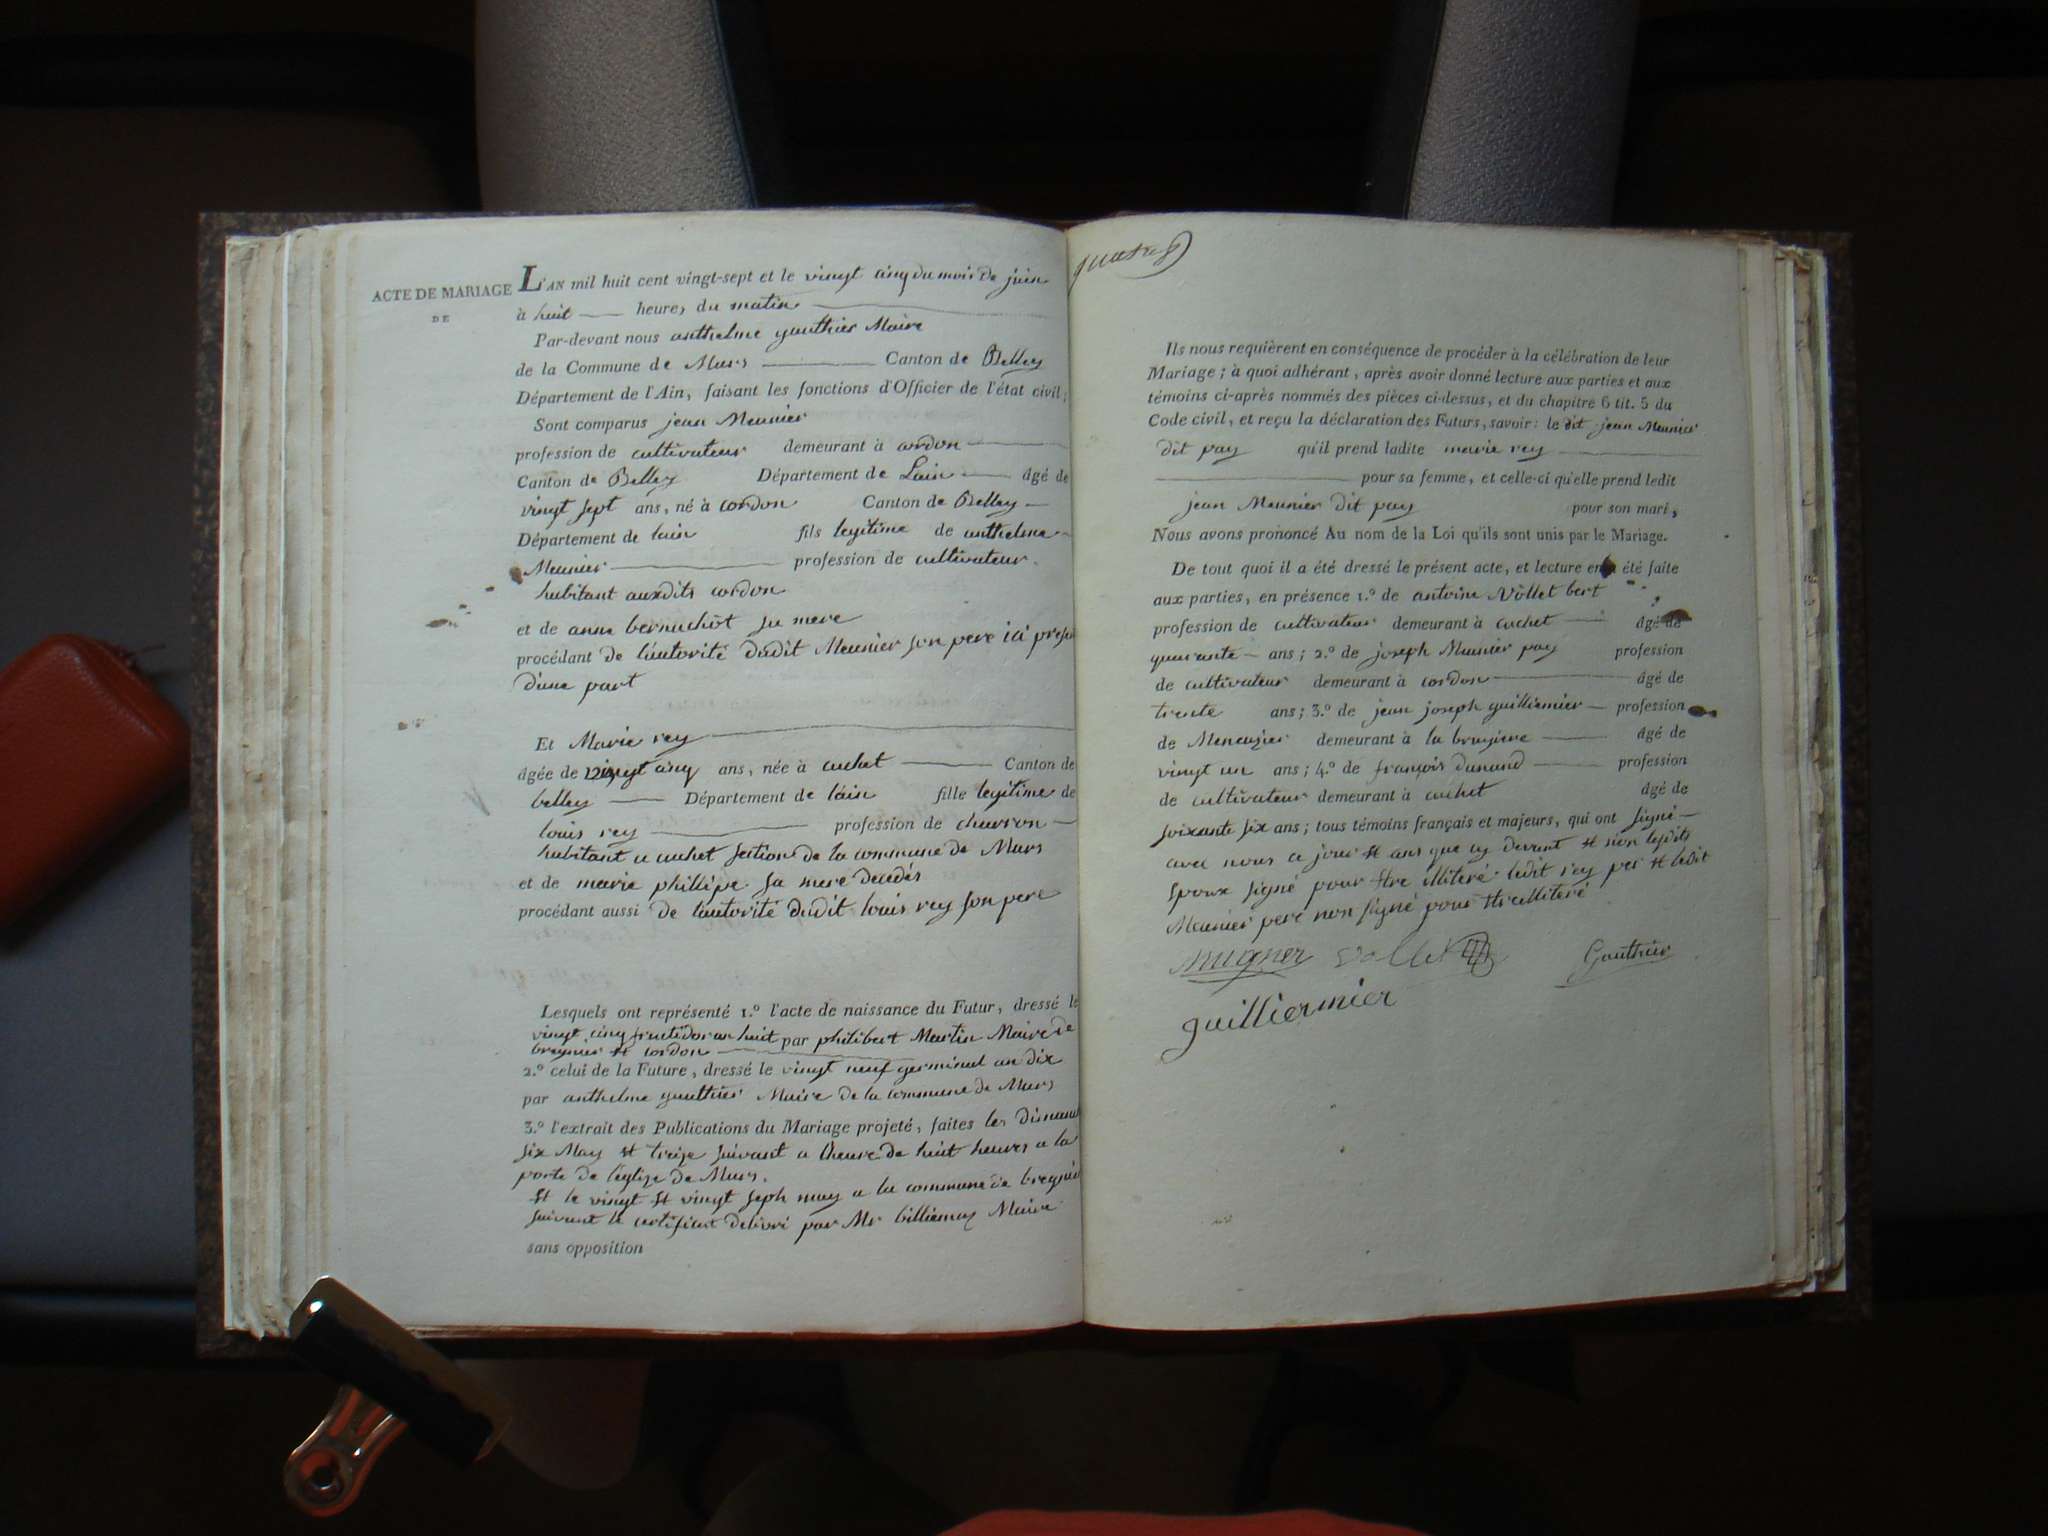 ACTE DE MARIAGE
DE
L'AN mil huit cent vingt-sept et le vingt cinq du mois de juin
à huit heures du matin
Par-devant nous anthelme gauthier Maire
de la Commune de Murs Canton de Belley
Département de l'Ain, faisant les fonctions d'Officier de l'état civil;
Sont comparus jean Meunier
profession de cultivateur demeurant à cordon
Canton de Belley Département de Lain âgé de
vingt sept ans, né à cordon Canton de Belley
Département de lain fils legitime de anthelme
Meunier profession de cultivateur.
habitant auxdits cordon
et de anne bernuchot sa mere
procédant de lautorité dudit Meunier son pere ici
d'une part
Et Marie rey
âgée de vingt cinq ans, née à cuchet Canton de
belley Département de lain fille legitime de
louis rey profession de chavron
habitant a cuchet section de la commune de Murs
et de marie phillipe sa mere decedés
procédant aussi de lautorité dudit louis rey son pere
Lesquels ont représenté 1.º l'acte de naissance du Futur, dressé le
vingt cinq fructidor an huit par philibert Martin Maire de
bregnier et cordon
2.º celui de la Future, dressé le vingt neuf germinal an dix
par anthelme gauthier Maire de la commune de Murs
3.º l'extrait des Publications du Mariage projeté, faites les
six May et treize suivant a lheure de huit heures a la
porte de léglize de Murs.
et le vingt et vingt seph may a la commune de
suivant le certificat delivré par Mr billiemaz Maire
sans opposition
Ils nous requièrent en conséquence de procéder à la célébration de leur
Mariage; à quoi adhérant, après avoir donné lecture aux parties et aux
témoins ci-après nommés des pièces ci-dessus, et du chapitre 6 tit. 5 du
Code civil, et reçu la déclaration des Futurs, savoir: le dit jean Meunier
dit pay qu'il prend ladite marie rey
pour sa femme, et celle-ci qu'elle prend ledit
jean Meunier dit pay pour son mari,
Nous avons prononcé Au nom de la Loi qu'ils sont unis par le Mariage.
De tout quoi il a été dressé le présent acte, et lecture en a été faite
aux parties, en présence 1.º de antoine Vollet bert
profession de cultivateur demeurant à cuchet âgé de
quarante ans; 2.º de joseph Munier pay profession
de cultivateur demeurant à cordon âgé de
trente ans; 3.º de jean joseph guilliermier profession
de Menuzier demeurant à la bruyiere âgé de
vingt un ans; 4.º de françois dunand profession
de cultivateur demeurant à cuchet âgé de
soixante six ans; tous témoins français et majeurs, qui ont signé
avec nous ce jour et ans que cy devant et non lesdits
Epoux signé pour etre illiteré ledit rey per et ledit
Meunier pere non signé pour etre illiteré
mugner vollet Gauthier
guilliermier